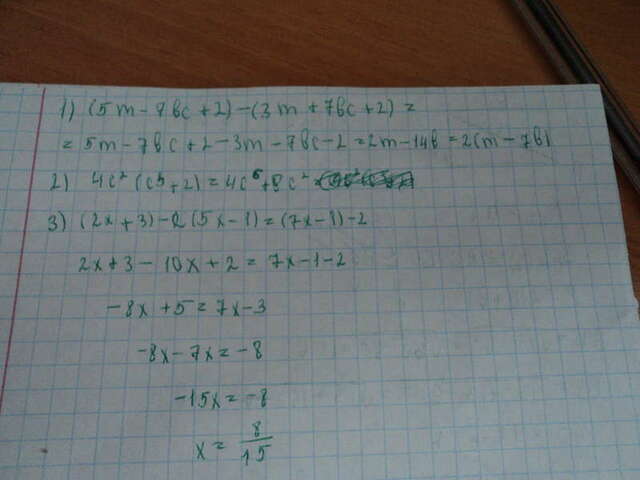 1) (5m - 7bc + 2) - (3m + 7bc + 2) =
= 5m - 7bc + 2 - 3m - 7bc - 2 = 2m - 14b = 2(m - 7b)
2) 4c² (c³ + 2) = 4c⁶ + 8c²
3) (2x + 3) - 2(5x - 1) = (7x - 1) - 2
2x + 3 - 10x + 2 = 7x - 1 - 2
-8x + 5 = 7x - 3
-8x - 7x = -8
-15x = -8
x = 8/15